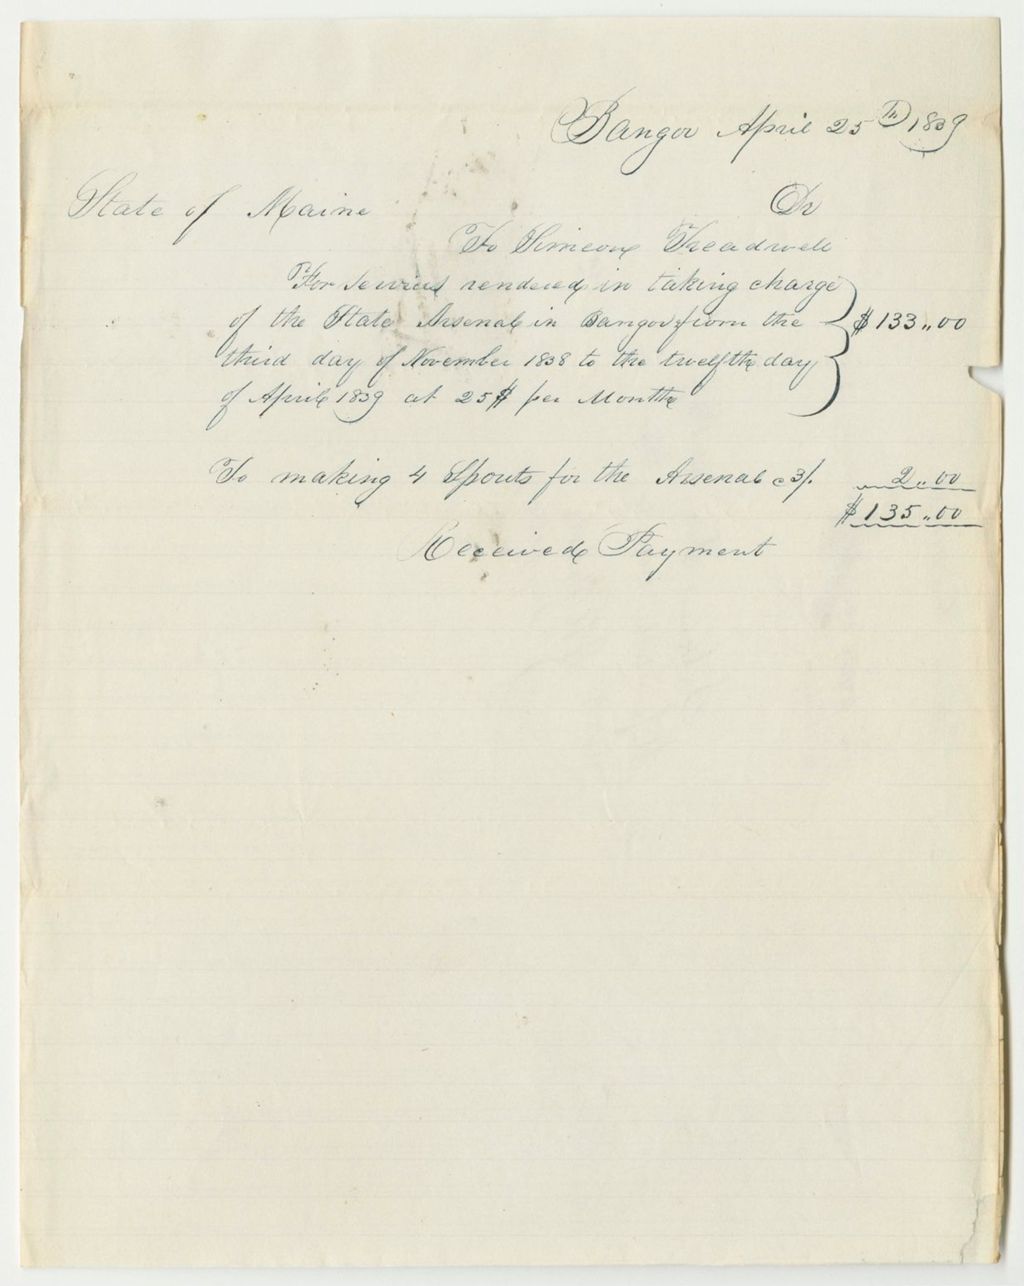 Bangor April 25th 1839
State of Maine Dr
To Simeon Treadwell
For services rendered in taking charge
of the State Arsenal in Bangor from the
third day of November 1838 to the twelfth day
of April 1839 at 25$ per Month
$133..00
To making 4 Spouts for the Arsenal @ 3/. 2..00
$135..00
Received Payment